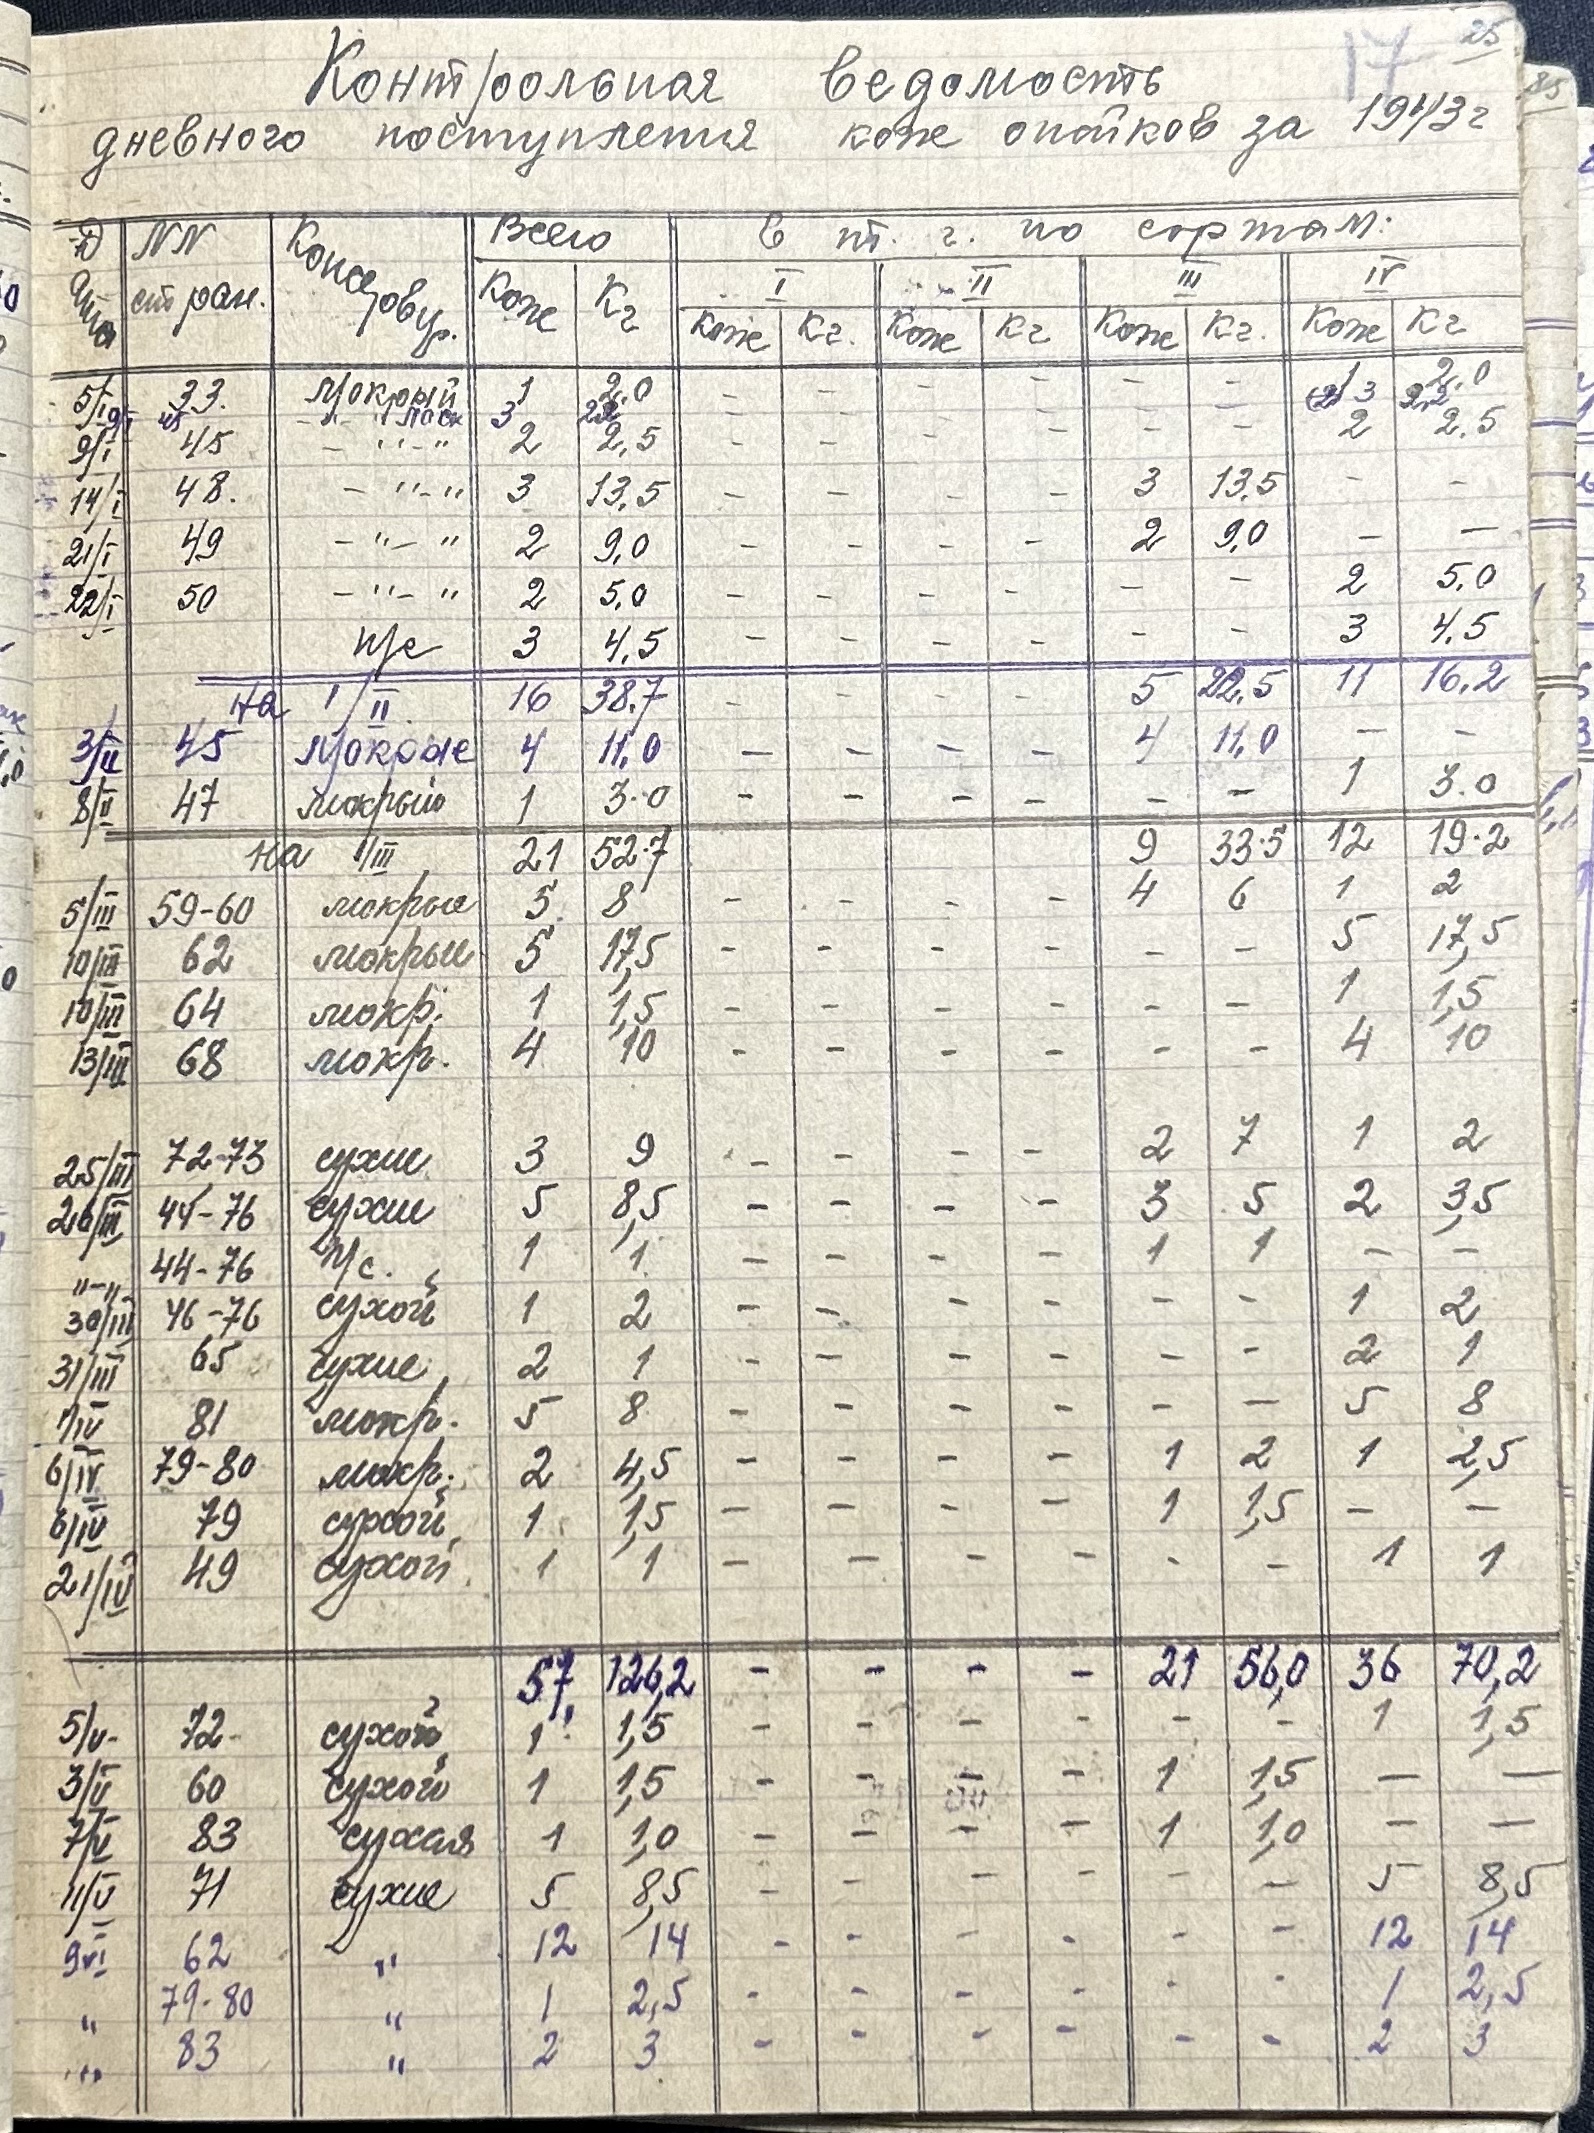 25
17
Контрольная ведомость
дневного поступления кож опойков за 1943 г
Дата NN стран. Консервир. Всего в т. ч. по сортам:
I II III IV
Кож Кг Кож Кг. Кож Кг Кож Кг. Кож Кг
5/I 33. Мокрый 1 2,0 - - - - - - 1 2,0
9/I 45 - " - 3 2,2 3 2,2
9/I 45 - " - " 2 2,5 - - - - - - 2 2,5
14/I 48. - " - " 3 13,5 - - - - 3 13,5 - -
21/I 49 - " - " 2 9,0 - - - - 2 9,0 - -
22/I 50 - " - " 2 5,0 - - - - - - 2 5,0
п/с 3 4,5 - - - - - - 3 4,5
На 1/II 16 38,7 - - - - 5 22,5 11 16,2
3/II 45 Мокрые 4 11,0 - - - - 4 11,0 - -
8/II 47 мокрый 1 3.0 - - - - - - 1 3.0
На 1/III 21 52.7 9 33.5 12 19.2
5/III 59-60 мокрые 5 8 - - - - 4 6 1 2
10/III 62 мокрые 5 17,5 - - - - - - 5 17,5
10/III 64 мокр. 1 1,5 - - - - - - 1 1,5
13/III 68 мокр. 4 10 - - - - - - 4 10
25/III 72-73 сухие 3 9 - - - - 2 7 1 2
26/III 44-76 сухие 5 8,5 - - - - 3 5 2 3,5
"-" 44-76 п/с. 1 1 - - - - 1 1 - -
30/III 46-76 сухой 1 2 - - - - 1 2
31/III 65 сухие 2 1 - - - - - - 2 1
1/IV 81 мокр. 5 8 - - - - - - 5 8
6/IV 79-80 мокр. 2 4,5 - - - - 1 2 1 2,5
6/IV 79 сухой 1 1,5 - - - - 1 1,5 - -
21/IV 49 сухой 1 1 - - - - - - 1 1
57 126,2 - - - - 21 56,0 36 70,2
5/V- 72- сухой 1 1,5 - - - - - - 1 1,5
3/V 60 сухой 1 1,5 - - - - 1 1,5 - -
7/V 83 сухая 1 1,0 - - - - 1 1,0 - -
11/V 71 сухие 5 8,5 - - - - - - 5 8,5
9 VI 62 " 12 14 - - - - - - 12 14
" 79-80 " 1 2,5 - - - - - - 1 2,5
" 83 " 2 3 - - - - - - 2 3